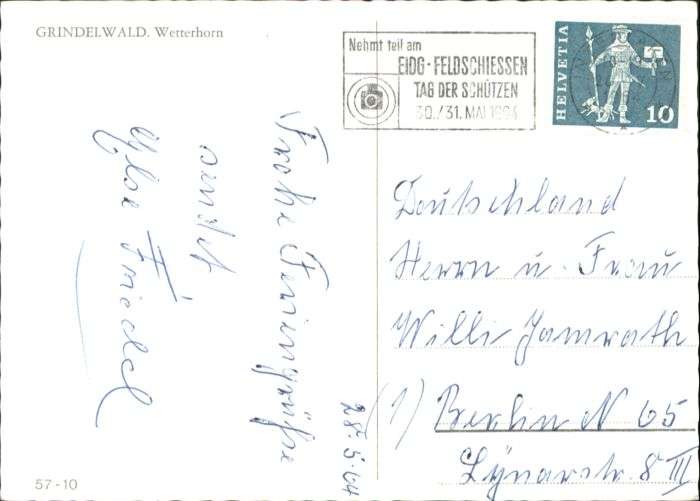 GRINDELWALD. Wetterhorn
Nehmt teil am
EIDG. FELDSCHIESSEN
TAG DER SCHÜTZEN
30./31. MAI 1964
HELVETIA
10
Frohe Feriengrüße
sendet
Ilse Friedel
28.5.64
Deutschland
Herrn u. Frau
Willi Jamrath
(1) Berlin N 65
Lynarstr. 8 III
57-10